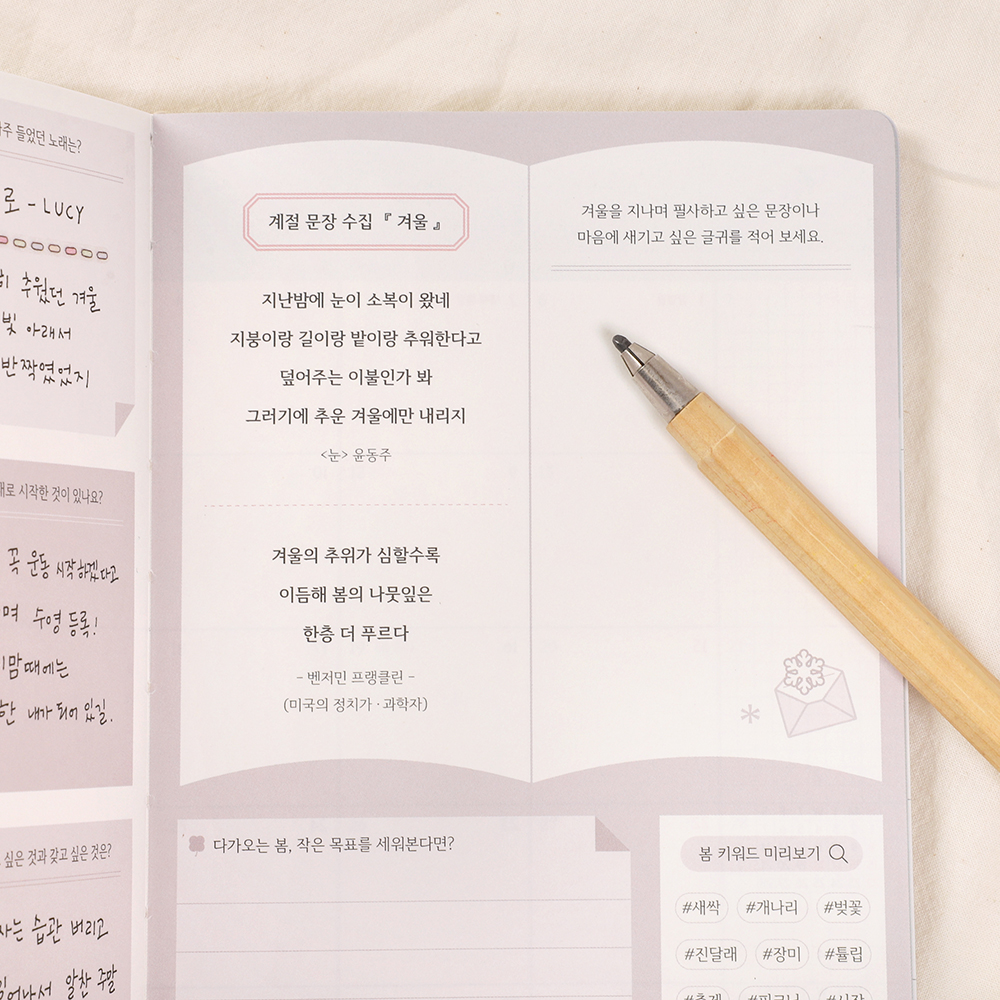 주 들었던 노래는?
로 - LUCY
추웠던 겨울
빛 아래서
반짝였었지
로 시작한 것이 있나요?
꼭 운동 시작하겠다고
며 수영 등록!
이맘때에는
한 내가 되어 있길.
싶은 것과 갖고 싶은 것은?
사는 습관 버리고
일어나서 알찬 주말
계절 문장 수집 『 겨울 』
지난밤에 눈이 소복이 왔네
지붕이랑 길이랑 밭이랑 추워한다고
덮어주는 이불인가 봐
그러기에 추운 겨울에만 내리지
<눈> 윤동주
겨울의 추위가 심할수록
이듬해 봄의 나뭇잎은
한층 더 푸르다
- 벤저민 프랭클린 -
(미국의 정치가 · 과학자)
겨울을 지나며 필사하고 싶은 문장이나
마음에 새기고 싶은 글귀를 적어 보세요.
다가오는 봄, 작은 목표를 세워본다면?
봄 키워드 미리보기
#새싹 #개나리 #벚꽃
#진달래 #장미 #튤립